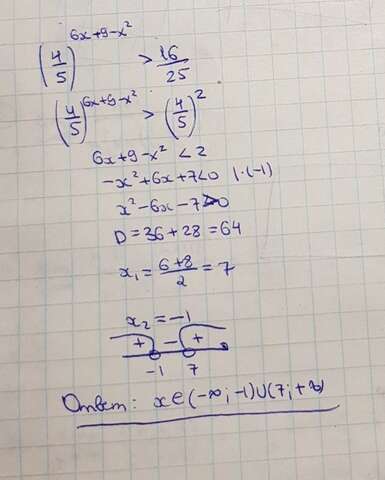 (4/5)^(6x+9-x²) > 16/25
(4/5)^(6x+9-x²) > (4/5)²
6x+9-x² < 2
-x²+6x+7<0 | ·(-1)
x²-6x-7>0
D = 36+28 = 64
x₁ = (6+8)/2 = 7
x₂ = -1
+ - +
-1 7
Ответ: x∈(-∞; -1)∪(7; +∞)